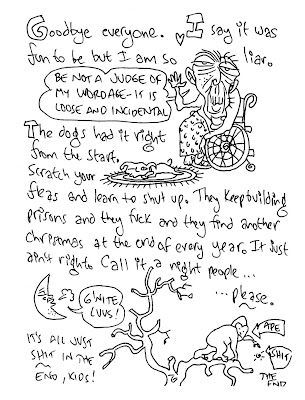 Goodbye everyone. I say it was
fun to be but I am so liar.
BE NOT A JUDGE OF
MY WORDAGE-IT IS
LOOSE AND INCIDENTAL
The dogs had it right
from the start.
Scratch your
fleas and learn to shut up. They keep building
prisons and they fuck and they find another
christmas at the end of every year. It just
ain't right. Call it a night people...
...please.
G'NITE
LUVS!
APE
SHIT
IT'S ALL JUST
SHIT IN THE
END, KIDS!
THE
END